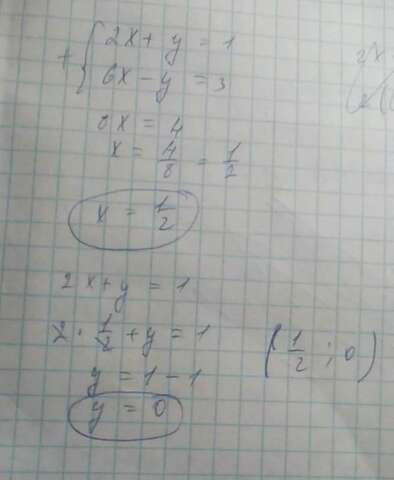 + { 2x + y = 1
6x - y = 3
8x = 4
x = 4/8 = 1/2
x = 1/2
2x + y = 1
2 · 1/2 + y = 1
y = 1 - 1
y = 0
(1/2 ; 0)